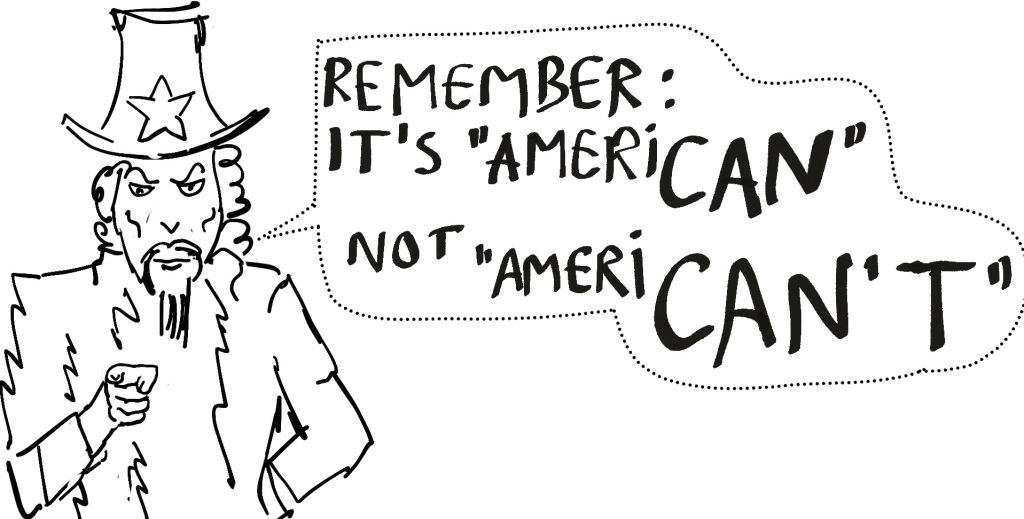 REMEMBER:
IT'S "AMERiCAN"
NOT "AMERiCAN'T"